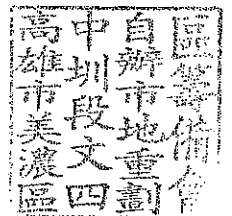 高雄市美濃區
中圳段文四
自辦市地重劃
區籌備會